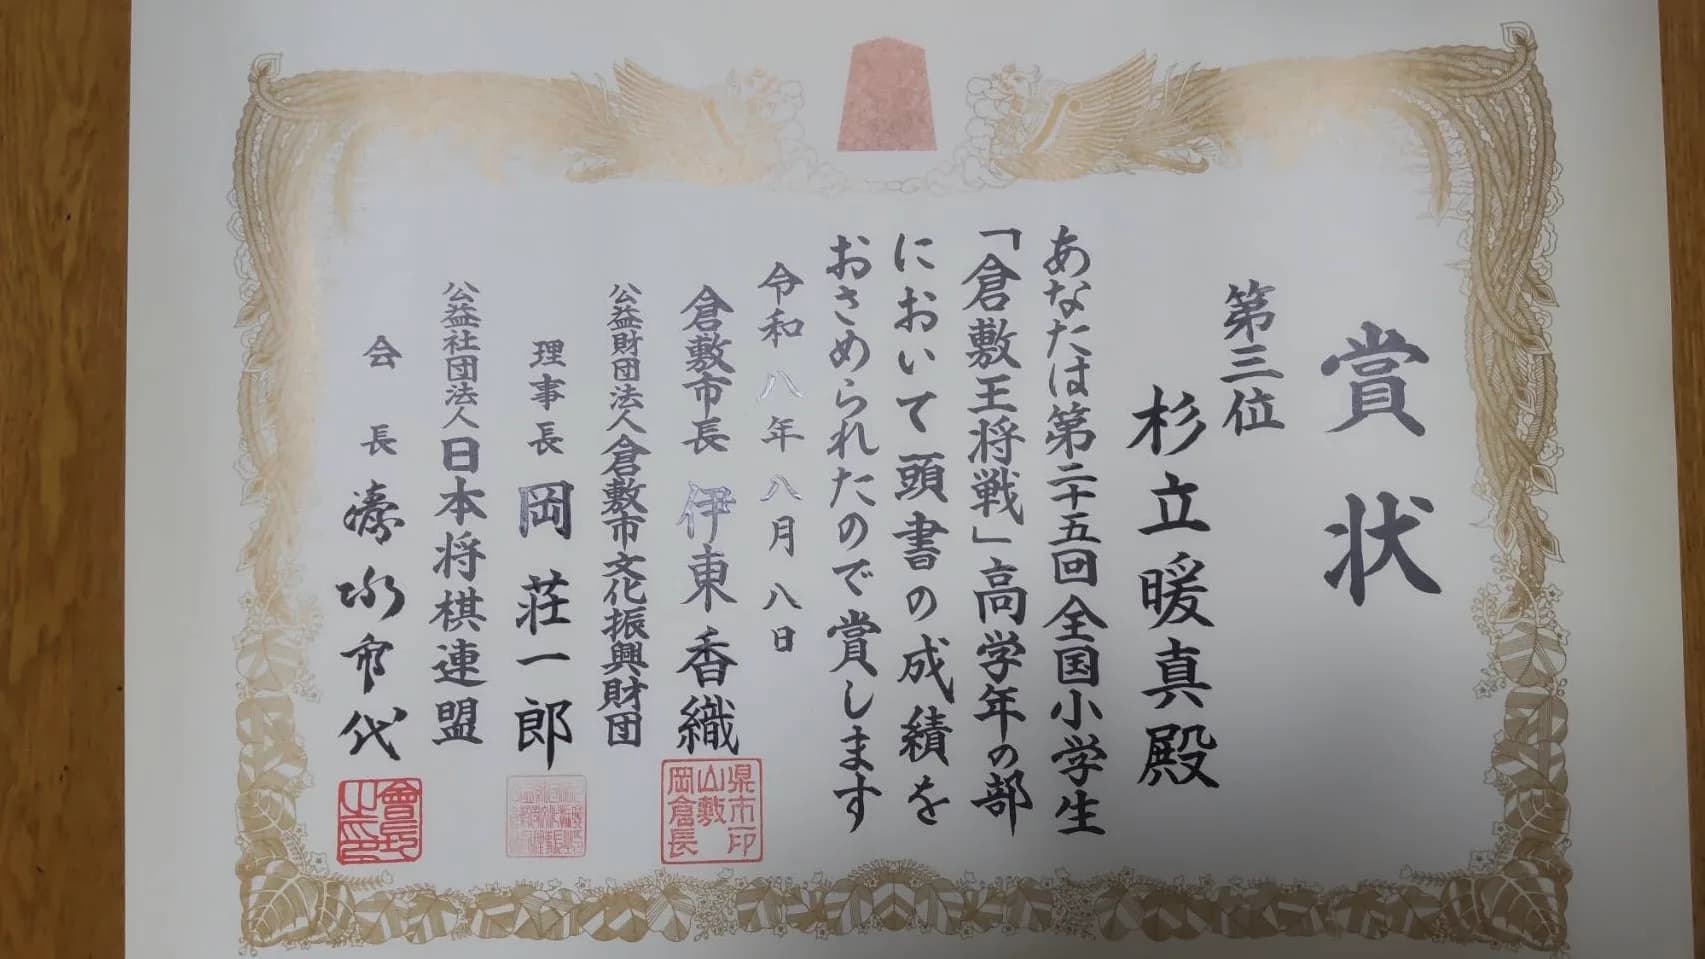 賞状
第三位
杉立暖真殿
あなたは第二十五回全国小学生
「倉敷王将戦」高学年の部
において頭書の成績を
おさめられたので賞します
令和八年八月八日
倉敷市長 伊東香織
公益財団法人倉敷市文化振興財団
理事長 岡荘一郎
公益社団法人日本将棋連盟
会長 清水市代
県市印
山敷
岡倉長
會長
之印